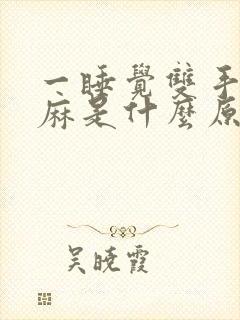 一睡覺雙手
麻是什麼原
吳曉霞